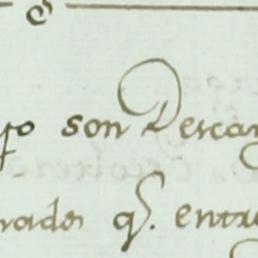 po son Descar
rades q. entre